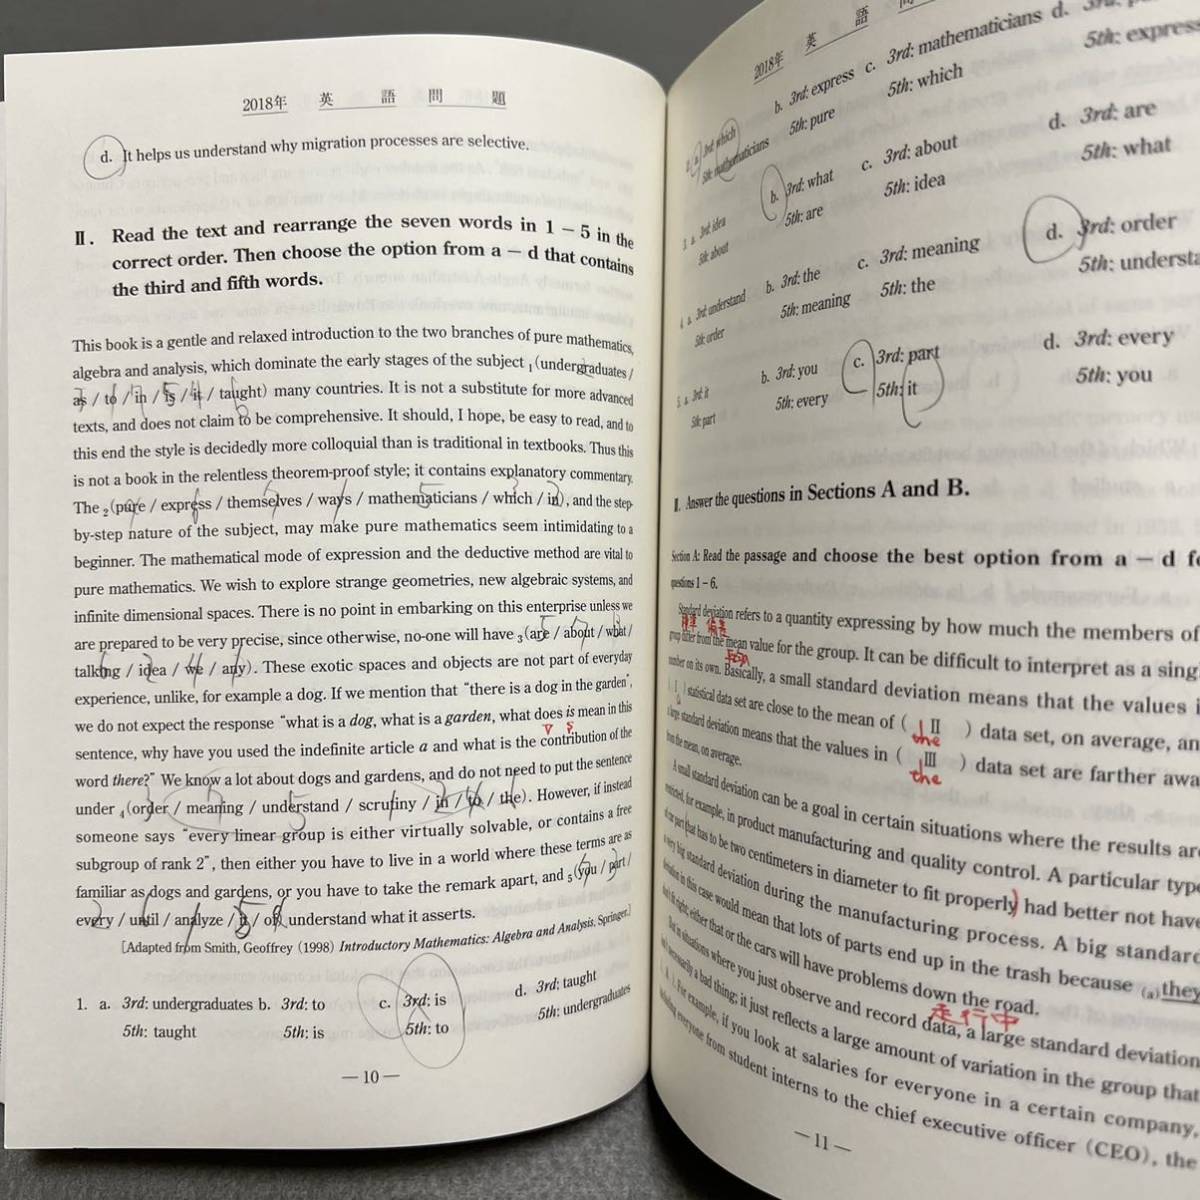 2018年 英 語 問 題
d. It helps us understand why migration processes are selective.
Ⅱ. Read the text and rearrange the seven words in 1 − 5 in the
correct order. Then choose the option from a − d that contains
the third and fifth words.
This book is a gentle and relaxed introduction to the two branches of pure mathematics,
algebra and analysis, which dominate the early stages of the subject 1(undergraduates /
as / to / in / is / it / taught) many countries. It is not a substitute for more advanced
texts, and does not claim to be comprehensive. It should, I hope, be easy to read, and to
this end the style is decidedly more colloquial than is traditional in textbooks. Thus this
is not a book in the relentless theorem-proof style; it contains explanatory commentary.
The 2(pure / express / themselves / ways / mathematicians / which / in), and the step-
by-step nature of the subject, may make pure mathematics seem intimidating to a
beginner. The mathematical mode of expression and the deductive method are vital to
pure mathematics. We wish to explore strange geometries, new algebraic systems, and
infinite dimensional spaces. There is no point in embarking on this enterprise unless we
are prepared to be very precise, since otherwise, no-one will have 3(are / about / what /
talking / idea / we / any). These exotic spaces and objects are not part of everyday
experience, unlike, for example a dog. If we mention that "there is a dog in the garden",
we do not expect the response "what is a dog, what is a garden, what does is mean in this
sentence, why have you used the indefinite article a and what is the contribution of the
word there?" We know a lot about dogs and gardens, and do not need to put the sentence
under 4(order / meaning / understand / scrutiny / in / to / the). However, if instead
someone says "every linear group is either virtually solvable, or contains a free
subgroup of rank 2", then either you have to live in a world where these terms are as
familiar as dogs and gardens, or you have to take the remark apart, and 5(you / part /
every / until / analyze / it / of) understand what it asserts.
[Adapted from Smith, Geoffrey (1998) Introductory Mathematics: Algebra and Analysis. Springer.]
1. a. 3rd: undergraduates b. 3rd: to c. 3rd: is d. 3rd: taught
5th: taught 5th: is 5th: to 5th: undergraduates
— 10 —
2018年 英 語
2. a. 3rd: which b. 3rd: express c. 3rd: mathematicians d. 3rd:
5th: mathematicians 5th: pure 5th: which 5th: express
3. a. 3rd: idea b. 3rd: what c. 3rd: about d. 3rd: are
5th: about 5th: are 5th: idea 5th: what
4. a. 3rd: understand b. 3rd: the c. 3rd: meaning d. 3rd: order
5th: order 5th: meaning 5th: the 5th: understa
5. a. 3rd: it b. 3rd: you c. 3rd: part d. 3rd: every
5th: part 5th: every 5th: it 5th: you
Ⅲ. Answer the questions in Sections A and B.
Section A: Read the passage and choose the best option from a − d fo
questions 1 − 6.
Standard deviation refers to a quantity expressing by how much the members of
標準 偏差
group differ from the mean value for the group. It can be difficult to interpret as a sing
number on its own. Basically, a small standard deviation means that the values i
( Ⅰ ) statistical data set are close to the mean of ( Ⅱ ) data set, on average, an
the
a large standard deviation means that the values in ( Ⅲ ) data set are farther awa
the
from the mean, on average.
A small standard deviation can be a goal in certain situations where the results are
restricted, for example, in product manufacturing and quality control. A particular type
of car part that has to be two centimeters in diameter to fit properly had better not have
a very big standard deviation during the manufacturing process. A big standard
deviation in this case would mean that lots of parts end up in the trash because (a)they
don't fit right; either that or the cars will have problems down the road.
走行中
But in situations where you just observe and record data, a large standard deviation
isn't necessarily a bad thing; it just reflects a large amount of variation in the group that
For example, if you look at salaries for everyone in a certain company,
including everyone from student interns to the chief executive officer (CEO), the
— 11 —